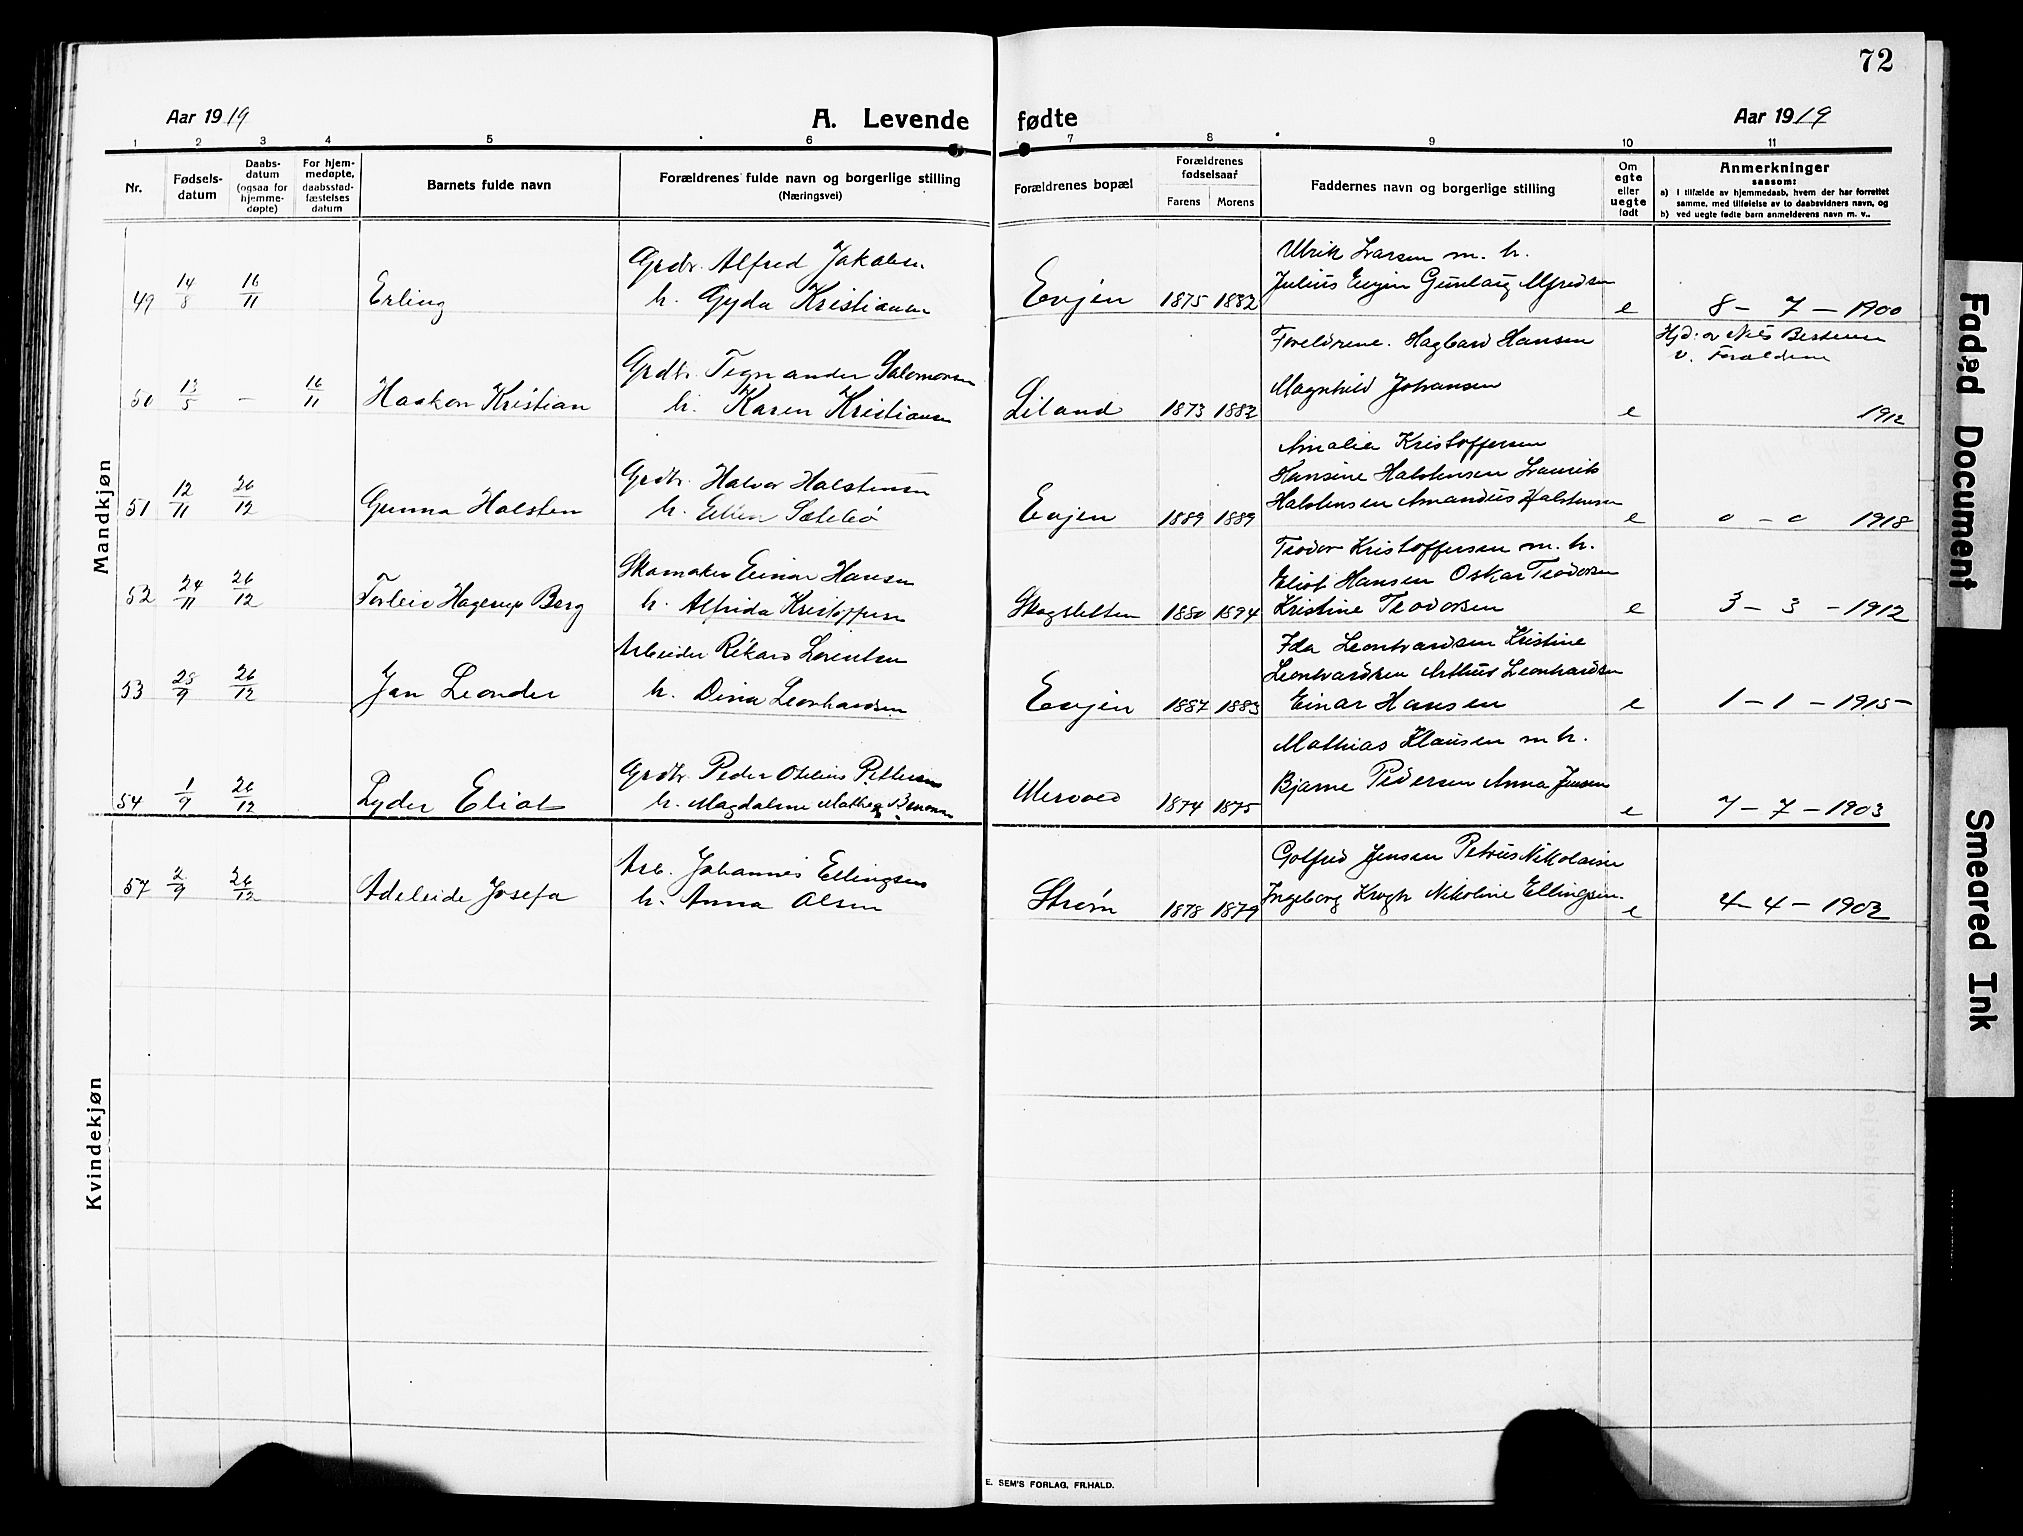 72
Aar 1919
A. Levende fødte
Aar 1919
1 2 3 4 5 6 7 8 9 10 11
Nr.
Fødsels-
datum
Daabs-
datum
(ogsaa for
hjemme-
døpte)
For hjem-
medøpte,
daabsstad-
fæstelses
datum
Barnets fulde navn
Forældrenes fulde navn og borgerlige stilling
(Næringsvei)
Forældrenes bopæl
Forældrenes
fødselsaar
Farens Morens
Faddernes navn og borgerlige stilling
Om
egte
eller
uegte
født
Anmerkninger
saasom:
a) I tilfælde av hjemmedaab, hvem der har forrettet
samme, med tilføielse av to daabsvidners navn, og
b) ved uegte fødte barn anmelderens navn m. v..
Mandkjøn
49 14/8 16/11 Erling
Grdbr. Alfred Jakobsen
h. Gyda Kristiansen
Evjen 1875 1882
Ulrik Larsen m. h.
Julius Evjen Gunlaug Alfredsen
e 8 - 7 - 1900
50 13/5 - 16/11 Haakon Kristian
Grdbr. Tegnander Salomonsen
h. Karen Kristiansen
Liland 1873 1882
Foreldrene. Hagbard Hansen
Magnhild Johansen
e
Hjd. av Nils
v. Forældrene
1912
51 12/11 26/12 Gunna Halsten
Grdbr. Halvor Halstensen
h. Ellen
Evjen 1889 1889
Amalie Kristoffersen
Hansine Halstensen Laurits
Halstensen Amandus Halstensen
e 0 - 0 1918
52 24/11 26/12 Torleiv Hagerup Berg
Skomaker Einar Hansen
h. Alfrida Kristoffersen
Skogsletten 1880 1894
Teodor Kristoffersen m. h.
Eliot Hansen Oskar Teodorsen
Kristine Teodorsen
e 3 - 3 - 1912
53 28/9 26/12 Jan Leonder
Arbeider Rikard Lorentsen
h. Dina Leonhardsen
Evjen 1887 1883
Ida Leonhardsen Kristine
Leonhardsen Arthur Leonhardsen
Einar Hansen
e 1 - 1 - 1915 -
54 1/9 26/12 Lyder Eliot
Grdbr. Peder Otelius Pettersen
h. Magdalene Mathea
1874 1875
Mathias Klausen m h.
Bjarne Pedersen Anna Jensen
e 7 - 7 - 1903
Kvindekjøn
57 2/9 26/12 Adeleide Josefa
Arb. Johannes Ellingsen
h. Anna Olsen
Strøm 1878 1879
Golfred Jensen Petrus Nikolaisen
Ingeborg Krogh Nikoline Ellingsen.
e 4 - 4 - 1902
E. SEM'S FORLAG, FR.HALD.
Faded Document
Smeared Ink